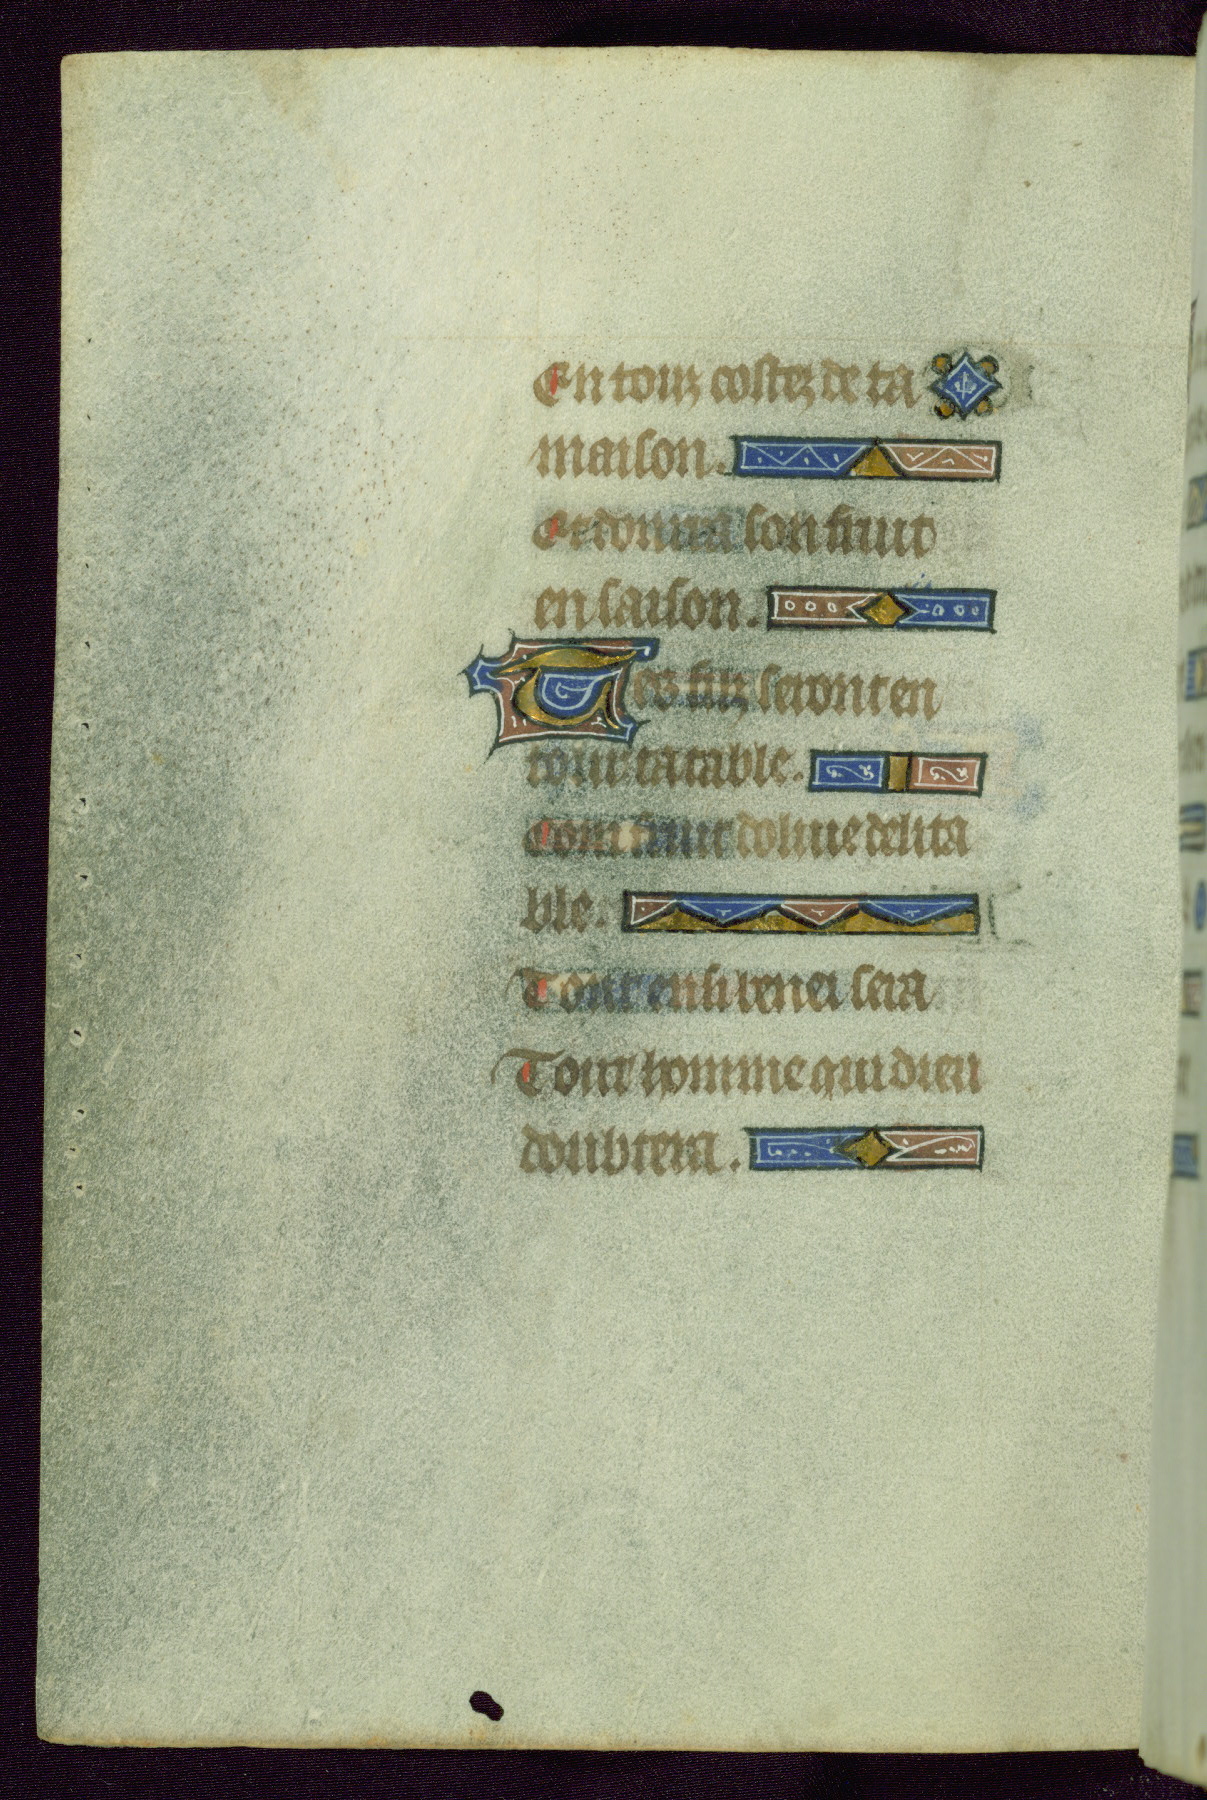 En touz costez de ta
maison.
Et donrra son fruit
en saison.
Tes filz seront en
tour ta table.
Com fruit dolive delita
ble.
Tout ensi benei sera
Tout homme qui dieu
doubtera.